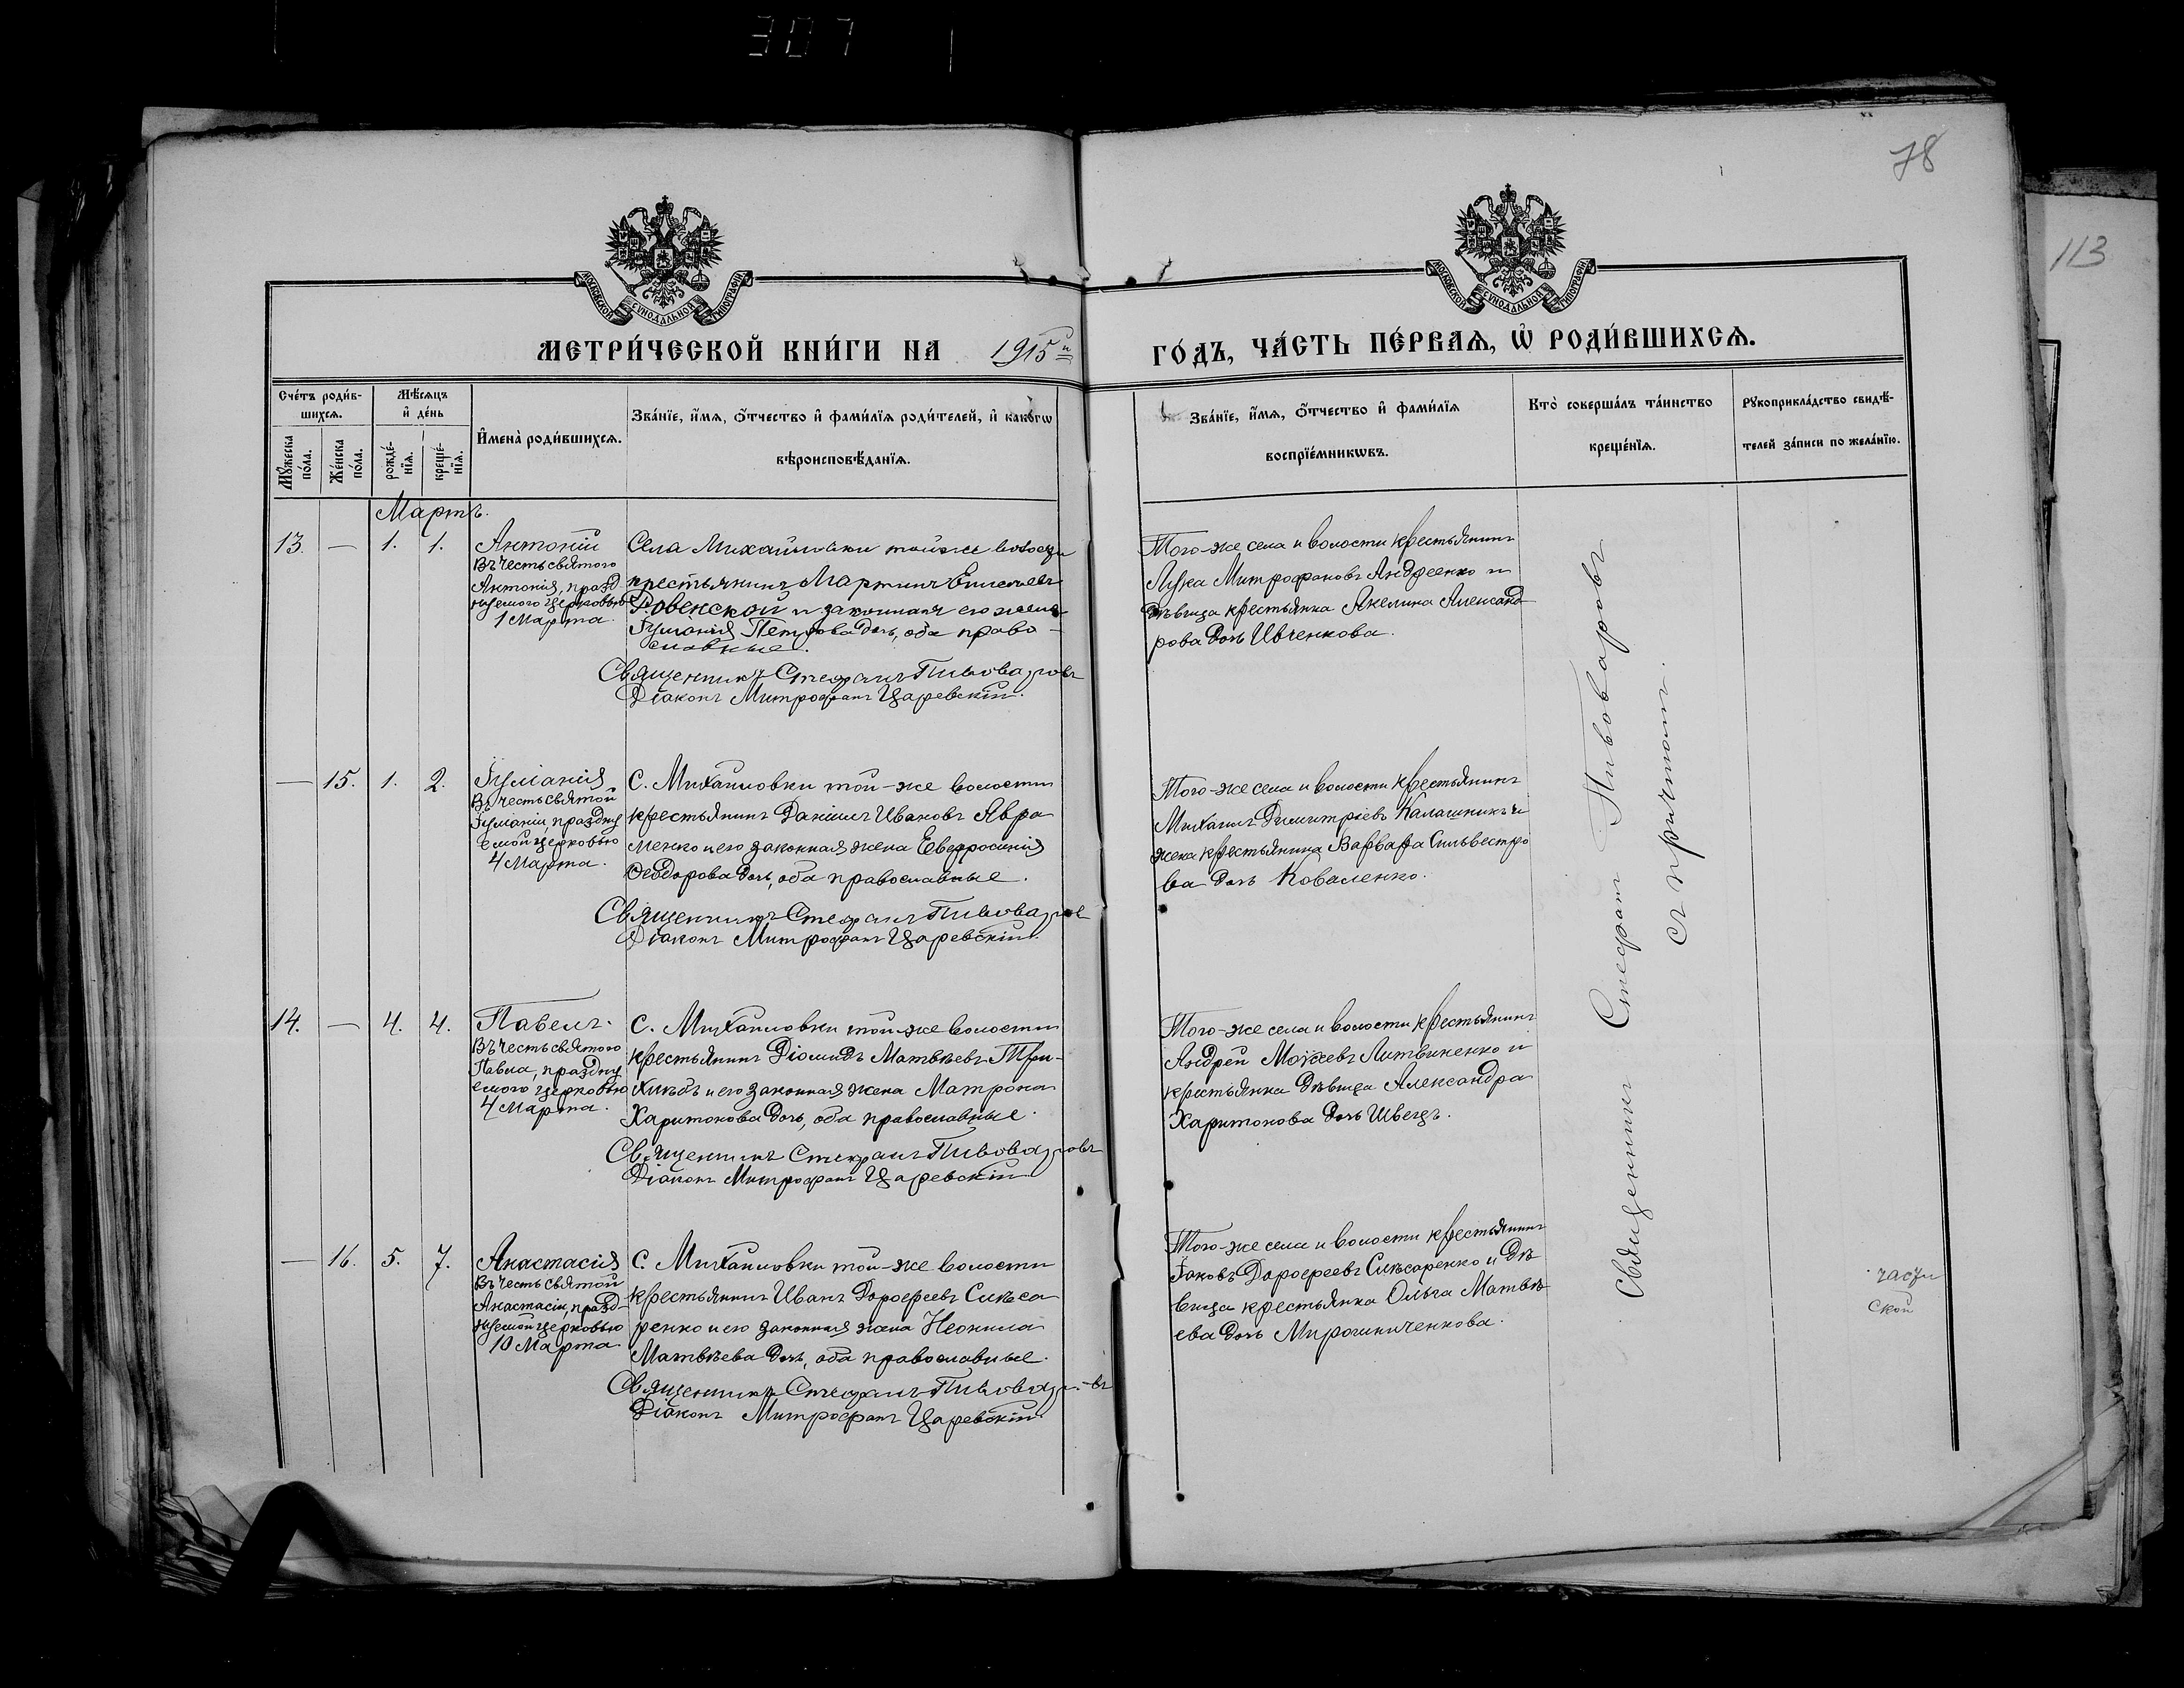 307
78
113
МОСКОВСКОЙ СѴНОДАЛЬНОЙ ТИПОГРАФІИ
МОСКОВСКОЙ СѴНОДАЛЬНОЙ ТИПОГРАФІИ
МЕТРИ́ЧЕСКОЙ КНИ́ГИ НА 1915й
ГО́ДЪ, ЧА́СТЬ ПЕ́РВАѦ, Ѿ РОДИ́ВШИХСѦ.
Сче́тъ роди́в-
шихсѧ.
Мꙋ́жеска по́ла.
Же́нска по́ла.
Мѣ́сѧцъ
и҆ де́нь
рожде́-нїѧ.
креще́-нїѧ.
И҆мена̀ роди́вшихсѧ.
Зва́нїе, и҆́мѧ, ѻ҆́тчество и҆ фами́лїѧ роди́телей, и҆ како́гѡ
вѣроисповѣ́данїѧ.
Зва́нїе, и҆́мѧ, ѻ҆́тчество и҆ фами́лїѧ
воспрїе́мникѡвъ.
Кто̀ соверша́лъ та́инство
креще́нїѧ.
Рꙋкоприкла́дство свидѣ́-
телей за́писи по жела́нїю.
Мартъ.
13. — 1. 1.
Антоній
Въ честь святого
Антонія, празд
нуемого церковью
1 Марта.
Села Михайловки той же волости
крестьянинъ Мартинъ
Ровенской и законная его жена
Іуліанія Петрова дочь, оба право-
славные.
Священникъ Стефанъ Пивоваровъ
Діаконъ Митрофанъ Царевскій.
Того-же села и волости крестьянинъ
Лука Митрофановъ Андреенко и
дѣвица крестьянка Акелина Александ
рова дочь Ивченкова.
— 15. 1. 2.
Іуліанія
Въ честь святой
Іуліаніи, праздну
емой церковью
4 Марта.
С. Михайловки той-же волости
крестьянинъ Даніилъ Ивановъ Авра
менко и его законная жена Евфросинія
Ѳеодорова дочь, оба православные.
Священникъ Стефанъ Пивоваровъ
Діаконъ Митрофанъ Царевскій.
Того-же села и волости крестьянинъ
Михаилъ Димитріевъ Калашникъ и
жена крестьянина Варвара Сильвестро
ва дочь Коваленко.
14. — 4. 4.
Павелъ.
Въ честь святого
Павла, праздну
емого церковью
4 Марта.
С. Михайловки той-же волости
крестьянинъ Діомидъ Матвѣевъ Три-
и его законная жена Матрона
Харитонова дочь, оба православные.
Священникъ Стефанъ Пивоваровъ
Діаконъ Митрофанъ Царевскій
Того-же села и волости крестьянинъ
Андрей Литвиненко и
крестьянка дѣвица Александра
Харитонова дочь Швецъ.
— 16. 5. 7.
Анастасія
Въ честь святой
Анастасіи, празд-
нуемой церковью
10 Марта
С. Михайловки той-же волости
крестьянинъ Иванъ Дорофеевъ Слѣса
ренко и его законная жена Неонила
Матвѣева дочь, оба православные.
Священникъ Стефанъ Пивоваровъ
Діаконъ Митрофанъ Царевскій
Того-же села и волости крестьянинъ
Іаковъ Дорофеевъ Слѣсаренко и дѣ
вица крестьянка Ольга Матвѣ
ева дочь Мирошниченкова.
Священникъ Стефанъ Пивоваровъ
съ причтомъ.
ской